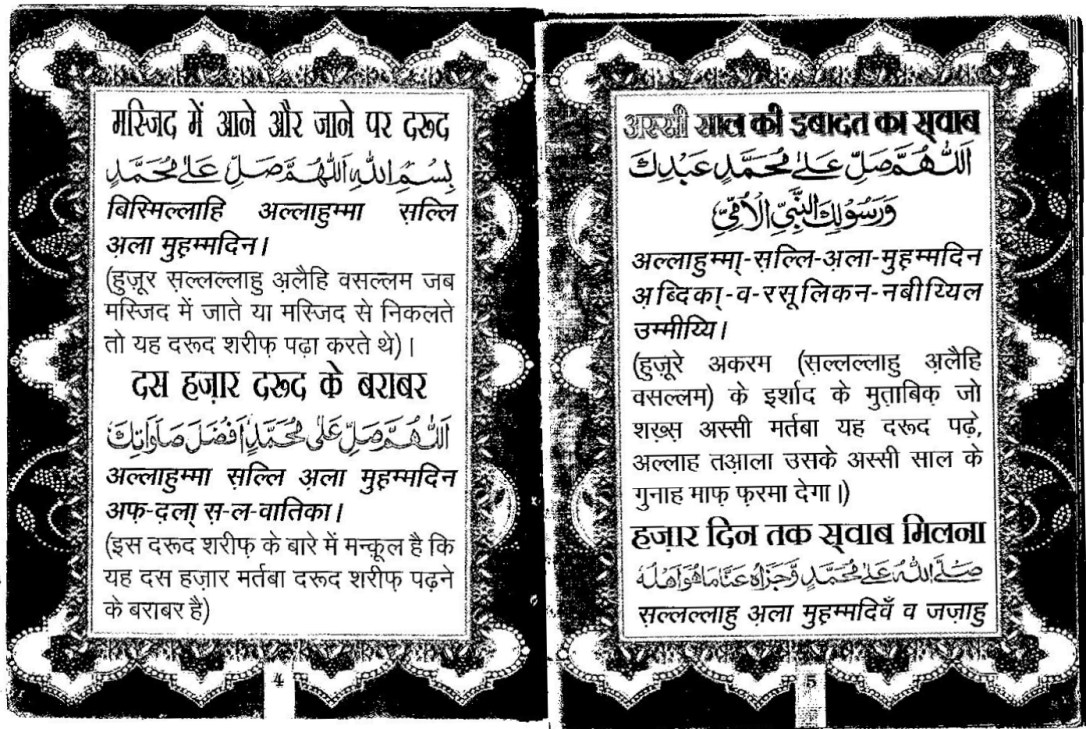 मस्जिद में आने और जाने पर दरूद
بِسْمِ اللهِ اَللّٰهُمَّ صَلِّ عَلٰى مُحَمَّدٍ
बिस्मिल्लाहि अल्लाहुम्मा स़ल्लि
अ़ला मुह़म्मदिन।
(हुज़ूर स़ल्लल्लाहु अ़लैहि वसल्लम जब
मस्जिद में जाते या मस्जिद से निकलते
तो यह दरूद शरीफ़ पढ़ा करते थे)।
दस हज़ार दरूद के बराबर
اَللّٰهُمَّ صَلِّ عَلٰى مُحَمَّدٍ اَفْضَلَ صَلَوَاتِكَ
अल्लाहुम्मा स़ल्लि अ़ला मुह़म्मदिन
अफ़-द़ला् स़-ल-वातिका।
(इस दरूद शरीफ़ के बारे में मन्कूल है कि
यह दस हज़ार मर्तबा दरूद शरीफ़ पढ़ने
के बराबर है)
4
अस्सी साल की इबादत का स़्वाब
اَللّٰهُمَّ صَلِّ عَلٰى مُحَمَّدٍ عَبْدِكَ
وَرَسُوْلِكَ النَّبِيِّ الْاُمِّيِّ
अल्लाहुम्मा्-स़ल्लि-अ़ला-मुह़म्मदिन
अ़ब्दिका्-व-रसूलिकन-नबीय्यिल
उम्मीय्यि।
(हुज़ूरे अकरम (स़ल्लल्लाहु अ़लैहि
वसल्लम) के इर्शाद के मुत़ाबिक़ जो
शख़्स अस्सी मर्तबा यह दरूद पढ़े,
अल्लाह तआ़ला उसके अस्सी साल के
गुनाह माफ़ फ़रमा देगा।)
हज़ार दिन तक स़्वाब मिलना
صَلَّى اللهُ عَلٰى مُحَمَّدٍ وَّجَزَاهُ عَنَّا مَا هُوَ اَهْلُهٗ
स़ल्लल्लाहु अ़ला मुह़म्मदिवँ व जज़ाहु
5